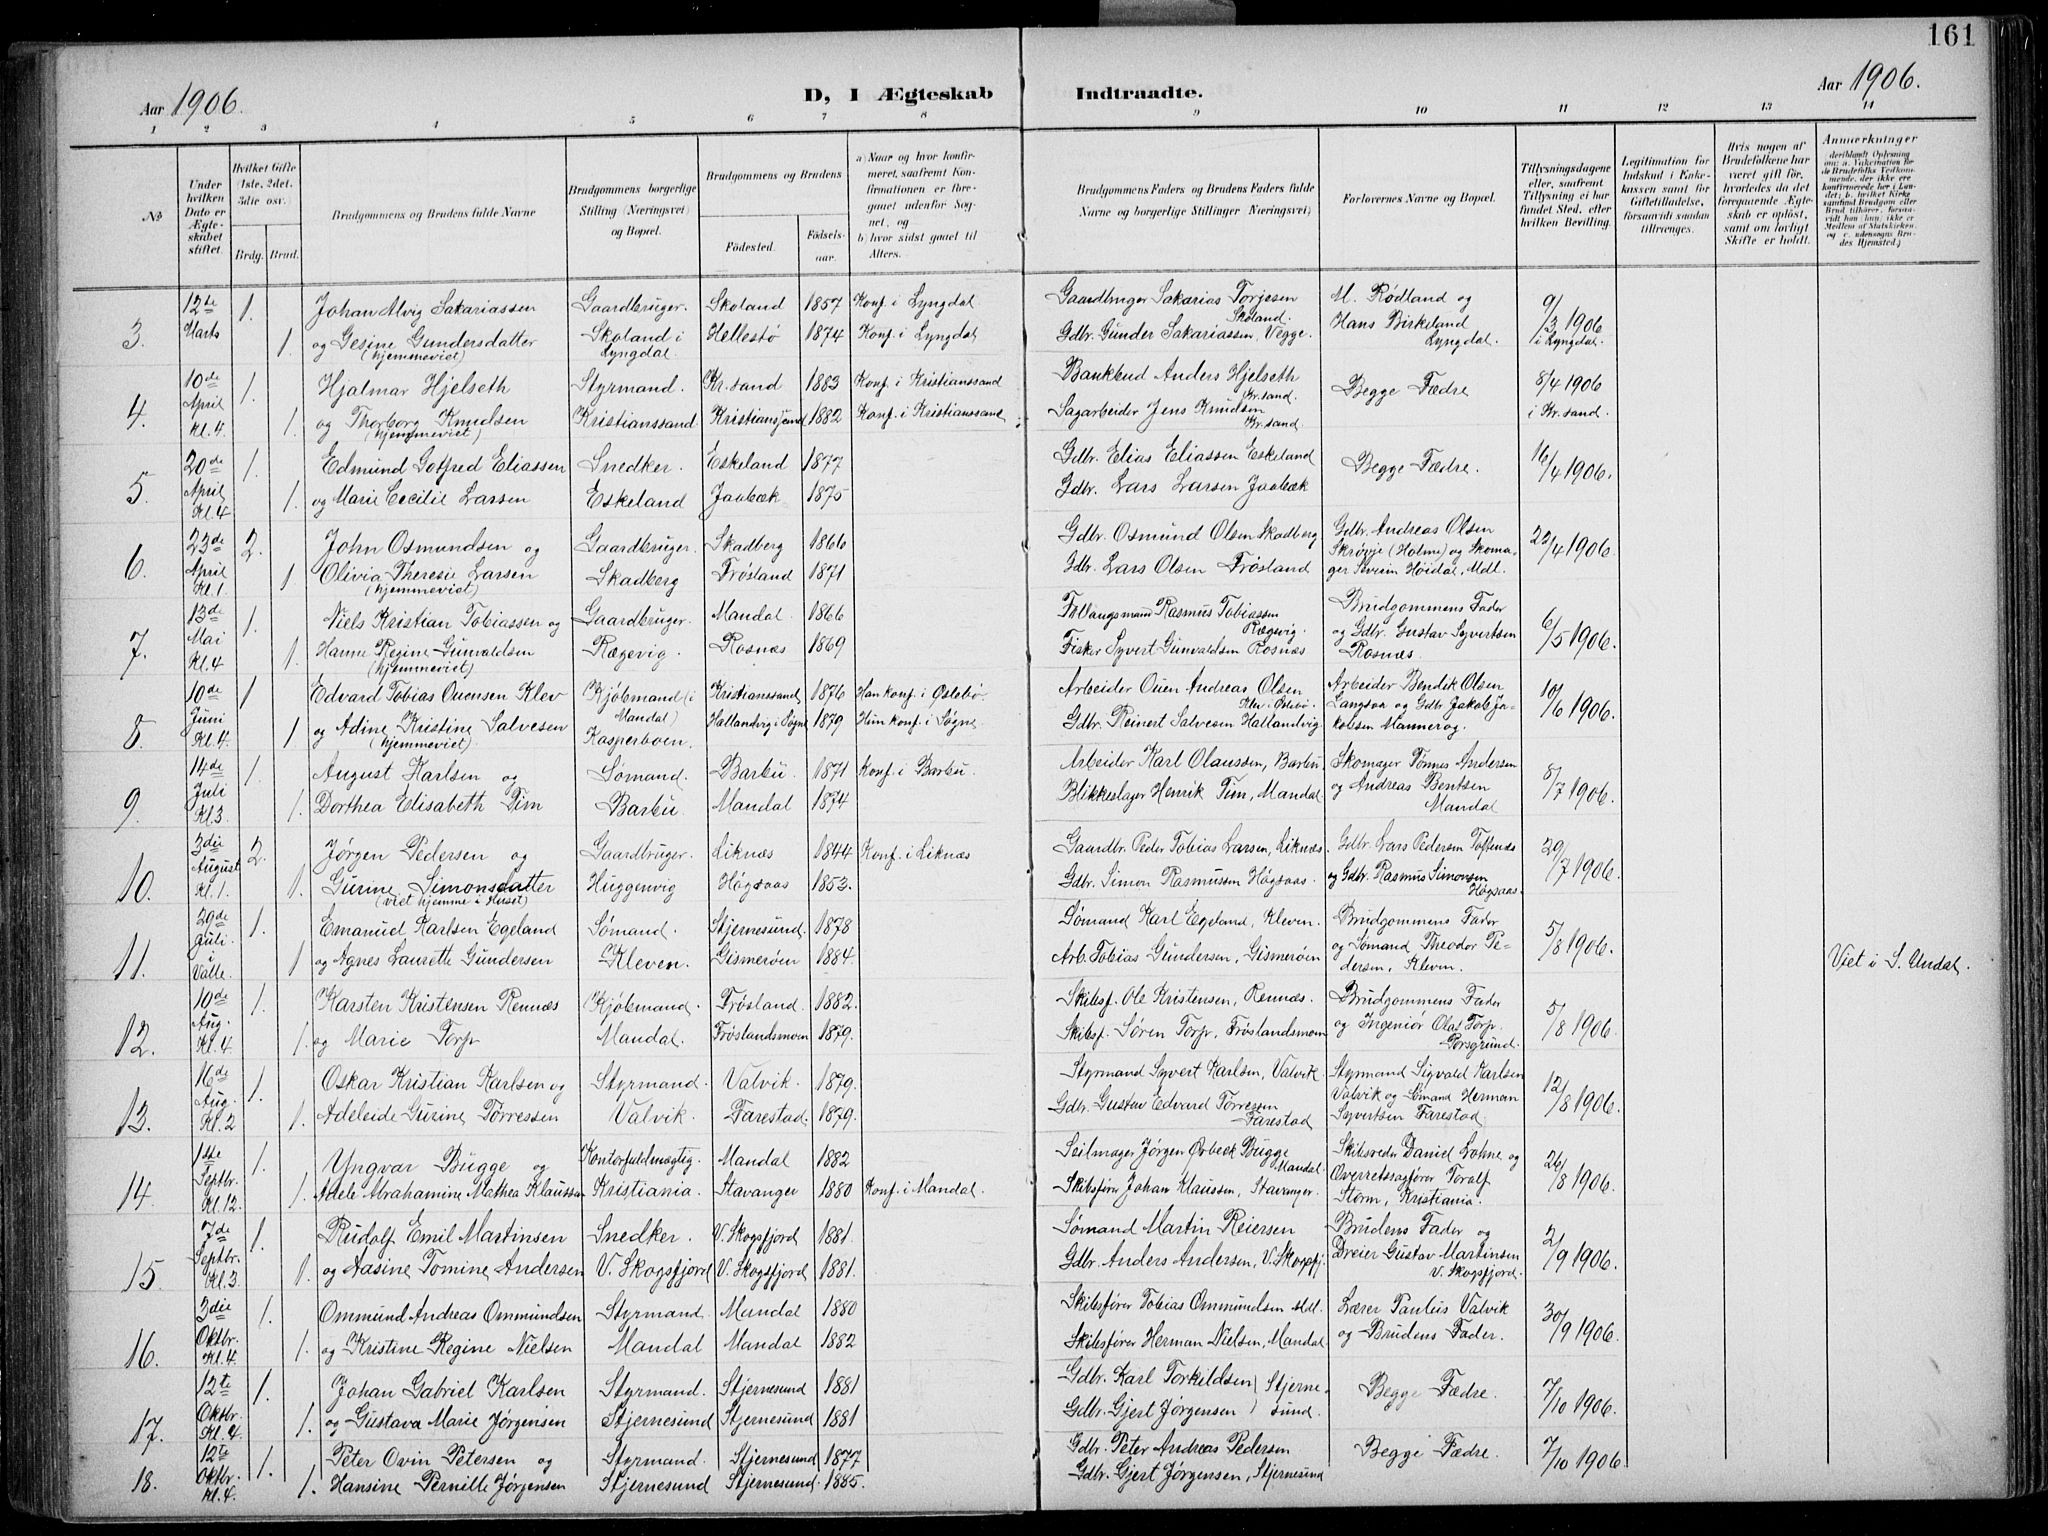 161
Aar 1906.
D, I Ægteskab Indtraadte.
Aar 1906.
1 2 3 4 5 6 7 8 9 10 11 12 13 14
No
Under hvilken Dato er Ægteskabet stiftet.
Hvilket Gifte (1ste, 2det, 3die osv.)
Brdg. Brud.
Brudgommens og Brudens fulde Navne
Brudgommens borgerlige Stilling (Næringsvei) og Bopæl.
Brudgommens og Brudens
Födested.
Födselsaar.
a) Naar og hvor konfirmeret, saafremt Konfirmationen er foregaaet udenfor Sognet, og
b) hvor sidst gaaet til Alters.
Brudgommens Faders og Brudens Faders fulde Navne og borgerlige Stillinger Næringsvei)
Forlovernes Navne og Bopæl.
Tillysningsdagene eller, saafremt Tillysning ei har fundet Sted, efter hvilken Bevilling.
Legitimation for Indskud i Enkekassen samt för Giftetilladelse, forsaavidt saadan tiltrænges.
Hvis nogen af Brudefolkene har været gift för, hvorledes da det foregaaende Ægteskab er oplöst, samt om lovligt Skifte er holdt.
Anmerkninger
deriblandt Oplysning om: a. Vakcination for de Brudefolks Vedkommende, der ikke ere konfirmerede her i Landet; b. hvilket Kirkesamfund Brudgom eller Brud tilhörer, forsaavidt han (hun) ikke er Medlem af Statskirken, og c. udensogns Brudes Hjemsted.)
3. 12te Marts 1. Johan Alvig Sakariassen Gaardbruger. Skoland 1857 Konf. i Lyngdal Gaardbruger Sakarias Torjesen Skoland. M. Rödland og 9/3 1906
1. og Gesine Gundersdatter (hjemmeviet) Skoland i Lyngdal. Hellestø 1874 Konf. i Lyngdal Gdbr. Gunder Sakariassen, Vegge. Hans Birkeland Lyngdal. i Lyngdal.
4. 10de April Kl. 4. 1. Hjalmar Hjelseth Styrmand. Kr.sand 1883 Konf. i Kristianssand Bankbud Anders Hjelseth Kr.sand. Begge Fædre 8/4 1906
1. og Thorborg Knudsen (hjemmeviet) Kristianssand. Kristianssand 1882 Konf. i Kristianssand Sagarbeider Jens Knudsen Kr.sand. i Kr.sand.
5. 20de April Kl. 4 1. Edmund Gotfred Eliassen Snedker. Eskeland 1877 Gdbr. Elias Eliassen Eskeland Begge Fædre. 16/4 1906.
1. og Marie Cecilie Larsen Eskeland Jaabæk 1875 Gdbr. Lars Larsen Jaabæk
6. 23de April Kl. 1. 2. John Osmundsen og Gaardbruger. Skadberg 1866 Gdbr. Osmund Olsen Skadberg Gdbr. Andreas Olsen 22/4 1906.
1 Olivia Theresie Larsen (hjemmeviet) Skadberg Frösland 1871 Gdbr. Lars Olsen Frösland Skrøvje (Holme) og Skomager Severin Höidal, Mdl.
7. 13de Mai Kl. 4 1. Niels Kristian Tobiassen og Gaardbruger. Mandal 1866 Rasmus Tobiassen Rægevig. Brudgommens Fader 6/5 1906.
1. Hanne Regine Gunvaldsen (hjemmeviet) Rægevig. Rosnæs 1869 Fisker Syvert Gunvaldsen Rosnæs og Gdbr. Gustav Syvertsen Rosnæs.
8. 10de Juni Kl. 4. 1 Edvard Tobias Ouensen Klev Kjöbmand (i Mandal) Kristianssand 1876 Han konf. i Øslebö. Arbeider Ouen Andreas Olsen Klev i Øslebö. Arbeider Bendik Olsen 10/6 1906.
1 og Adine Kristine Salvesen (hjemmeviet). Kasperboen. Hallandvig i Søgne 1879 Hun konf. i Søgne. Gdbr. Reinert Salvesen Hallandvig. Langaa og Gdbr Jakob Jakobsen Mannerog.
9. 14de Juli Kl 3. 1. August Karlsen og Sømand. Barbu. 1871 Konf. i Barbu. Arbeider Karl Olaussen, Barbu Skomager Tønnes Andersen 8/7 1906.
1. Dorthea Elisabeth Tim Barbu Mandal 1874 Blikkeslager Henrik Tim, Mandal og Andreas Bentsen Mandal
10. 3die August Kl. 1. 2. Jørgen Pedersen og Gaardbruger. Liknæs 1844 Konf. i Liknæs Gaardbr. Peder Tobias Larsen, Liknæs. Gdbr. Lars Pedersen Toftenæs 29/7 1906.
1. Gurine Simonsdatter (viet hjemme i Huset) Huggenvig Högsaas 1853. Gdbr. Simon Rasmussen Högsaas. og Gdbr. Rasmus Simonsen Högsaas.
11. 29de Juli. i Valle. 1. Emanuel Karlsen Egeland Sømand. Stjernesund. 1878 Sømand Karl Egeland, Kleven. Brudgommens Fader 5/8 1906.
1 og Agnes Laurette Gundersen Kleven. Gismerøen 1884. Arb. Tobias Gundersen, Gismerøen og Sømand Theodor Pedersen, Kleven. Viet i S. Undal.
12. 10de Aug. Kl. 4. 1. Karsten Kristensen Rennæs Kjöbmand. Frösland. 1882. Skibsf. Ole Kristensen, Rennæs. Brudgommens Fader 5/8 1906.
1. og Marie Torp Mandal. Fröslandsmoen 1879. Skibsf. Sören Torp, Fröslandsmoen og Ingeniör Olaf Torp. Porsgrund.
13. 16de Aug. Kl. 2 1. Oskar Kristian Karlsen og Styrmand. Valvik. 1879. Styrmand Syvert Karlsen, Valvik. Styrmand Sigvald Karlsen 12/8 1906.
1. Adeleide Gurine Torressen Valvik. Farestad. 1879. Gdbr. Gustav Edvard Torresen Farestad Valvik og Sømand Herman Syvertsen Farestad.
14. 1ste Septbr. Kl. 12. 1. Yngvar Bugge og Kontorfuldmægtig. Mandal 1882 Seilmager Jørgen Ørbeck Bugge Mandal. Skibsreder Daniel Lohne og 26/8 1906.
1. Adele Abrahamine Mathea Klaussen Kristiania. Stavanger 1880 Konf. i Mandal. Skibsförer Johan Klaussen, Stavanger. Overretssagförer Toralf Storm, Kristiania.
15. 7de Septbr. Kl. 3. 1. Rudolf Emil Martinsen Snedker. V. Skogsfjord 1881. Sømand Martin Reiersen Brudens Fader og 2/9 1906.
1. og Aasine Tomine Andersen V. Skogsfjord V. Skogsfjord 1881. Gdbr. Anders Andersen, V. Skogsfj. Dreier Gustav Martinsen V. Skogsfjord.
16. 3die Oktbr. Kl. 4. 1. Ommund Andreas Ommundsen Styrmand. Mandal 1880 Skibsförer Tobias Ommundsen Mdl. Lærer Paulus Valvik 30/9 1906.
1. og Kristine Regine Nielsen Mandal Mandal 1882 Skibsförer Herman Nielsen, Mandal og Brudens Fader.
17. 12te Oktbr. Kl. 4 1. Johan Gabriel Karlsen Styrmand. Stjernesund 1881 Gdbr. Karl Torkildsen) Stjerne- Begge Fædre. 7/10 1906.
1. og Gustava Marie Jørgensen Stjernesund Stjernesund 1881 Gdbr. Gjert Jørgensen ) sund.
18. 12te Oktbr. Kl. 4. 1. Peter Ovin Petersen og Styrmand. Stjernesund 1877 Gdbr. Peter Andreas Pedersen Begge Fædre. 7/10 1906
1. Hansine Pernille Jørgensen Stjernesund Stjernesund. 1885. Gdbr. Gjert Jørgensen, Stjernesund